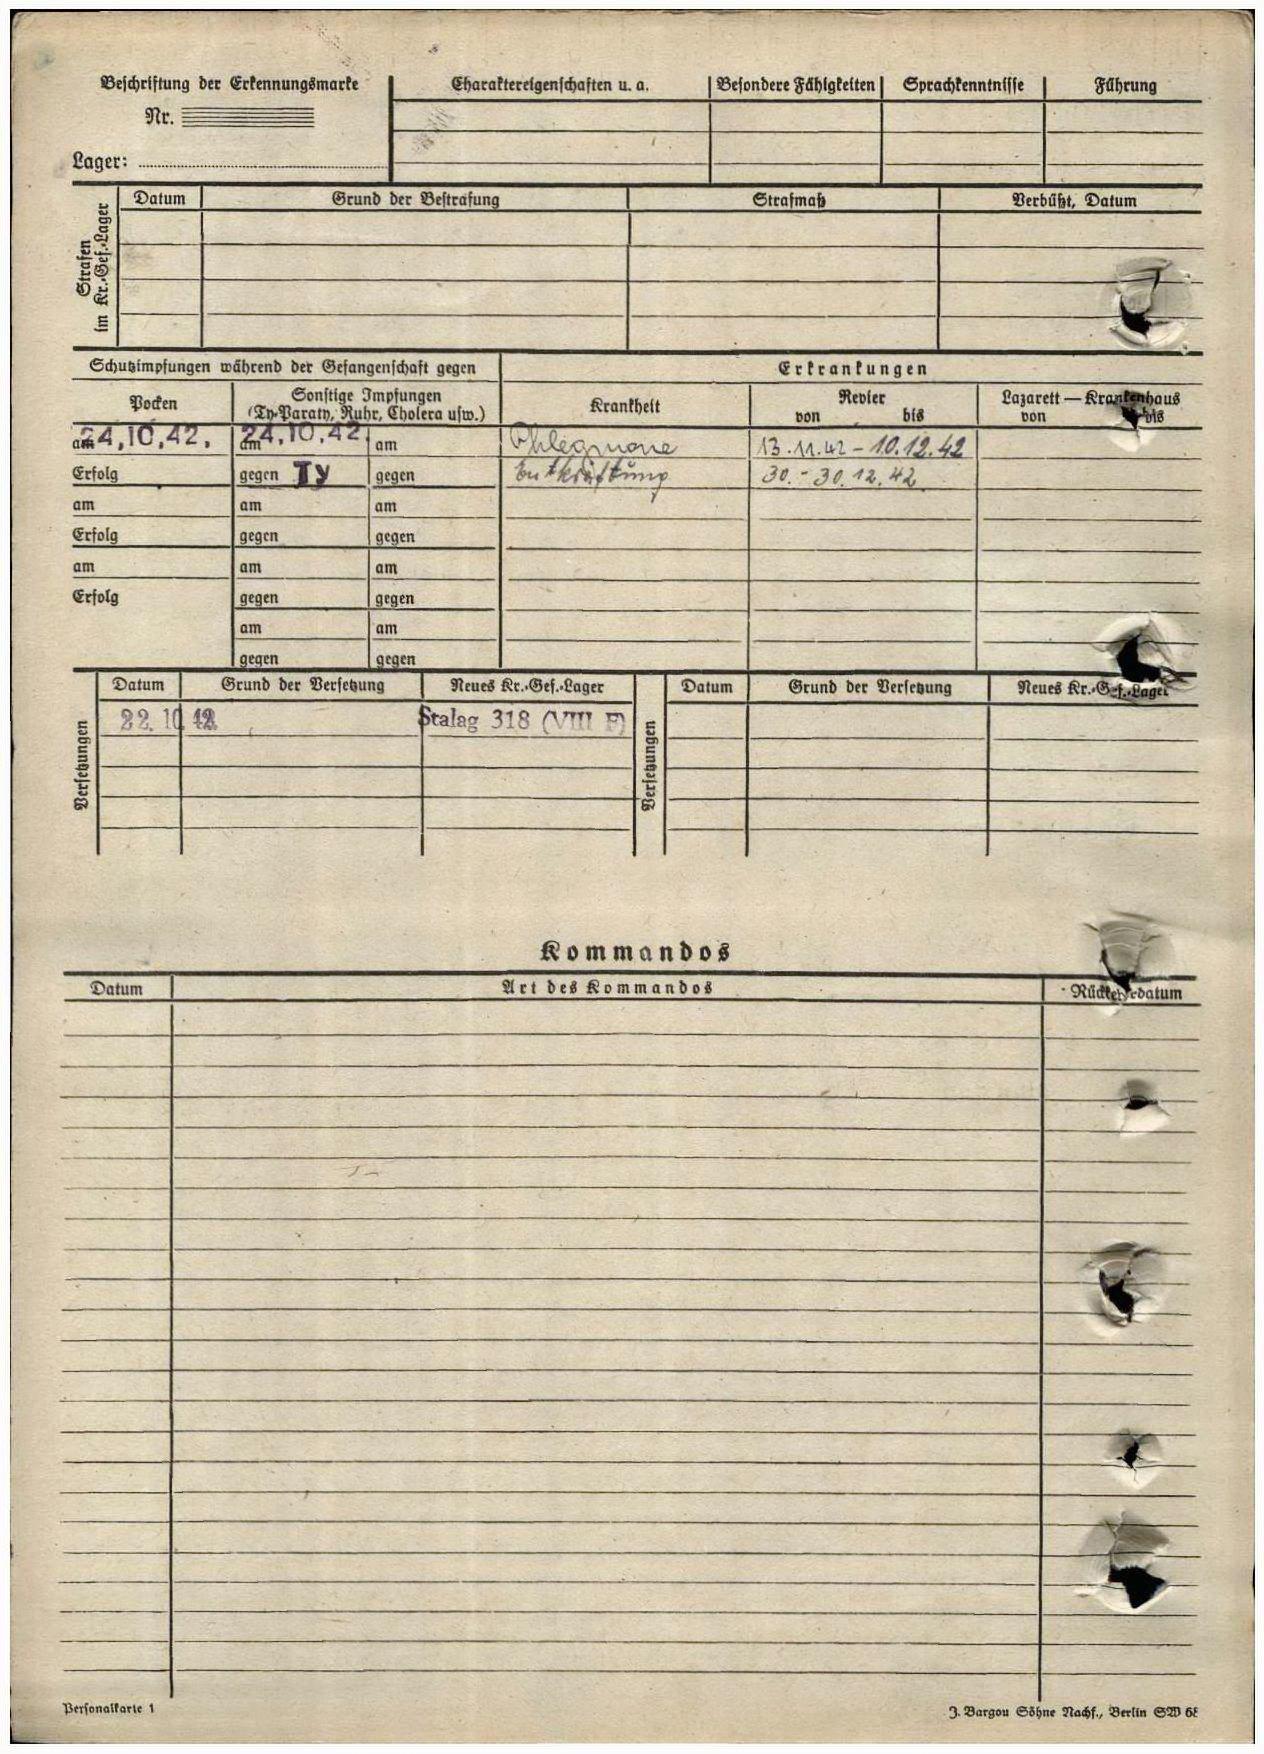 Beschriftung der Erkennungsmarke
Nr.
Lager:
Charaktereigenschaften u. a. Besondere Fähigkeiten Sprachkenntnisse Führung
Strafen im Kr.-Gef.-Lager
Datum Grund der Bestrafung Strafmaß Verbüßt, Datum
Schutzimpfungen während der Gefangenschaft gegen
Erkrankungen
Pocken
Sonstige Impfungen
(Ty-Paraty, Ruhr, Cholera usw.)
Krankheit
Revier
von bis
Lazarett — Krankenhaus
von bis
am 24.10.42. am 24.10.42. am Phlegmone 13.11.42 - 10.12.42
Erfolg gegen Ty gegen Entkräftung 30. - 30.12.42
am am am
Erfolg gegen gegen
am am am
Erfolg gegen gegen
am am
gegen gegen
Versetzungen
Datum Grund der Versetzung Neues Kr.-Gef.-Lager
22. 10. 42 Stalag 318 (VIII F)
Versetzungen
Datum Grund der Versetzung Neues Kr.-Gef.-Lager
Kommandos
Datum Art des Kommandos Rückkehrdatum
Personalkarte 1
J. Bargou Söhne Nachf., Berlin SW 68